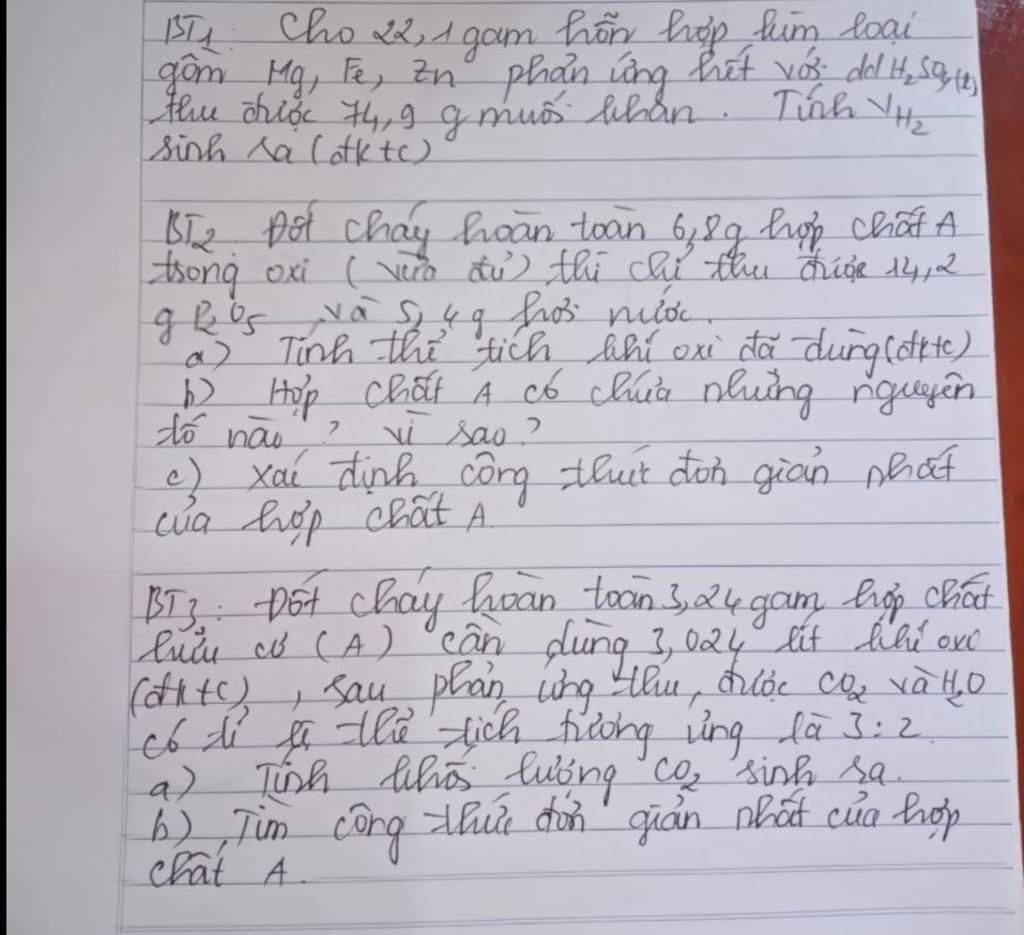 BT1: Cho 22,1 gam hỗn hợp kim loại
gồm Mg, Fe, Zn phản ứng hết với dd H₂SO₄(l)
thu được 74,9 g muối khan. Tính VH₂
sinh ra (đktc)
BT2 Đốt cháy hoàn toàn 6,8g hợp chất A
trong oxi (vừa đủ) thì chỉ thu được 14,2
g P₂O₅ và 5,4g hơi nước.
a) Tính thể tích khí oxi đã dùng (đktc)
b) Hợp chất A có chứa những nguyên
tố nào? vì sao?
c) xác định công thức đơn giản nhất
của hợp chất A
BT3: Đốt cháy hoàn toàn 3,24 gam hợp chất
hữu cơ (A) cần dùng 3,024 lít khí oxi
(đktc), sau phản ứng thu được CO₂ và H₂O
có tỉ lệ thể tích tương ứng là 3:2
a) Tính khối lượng CO₂ sinh ra.
b) Tìm công thức đơn giản nhất của hợp
chất A.